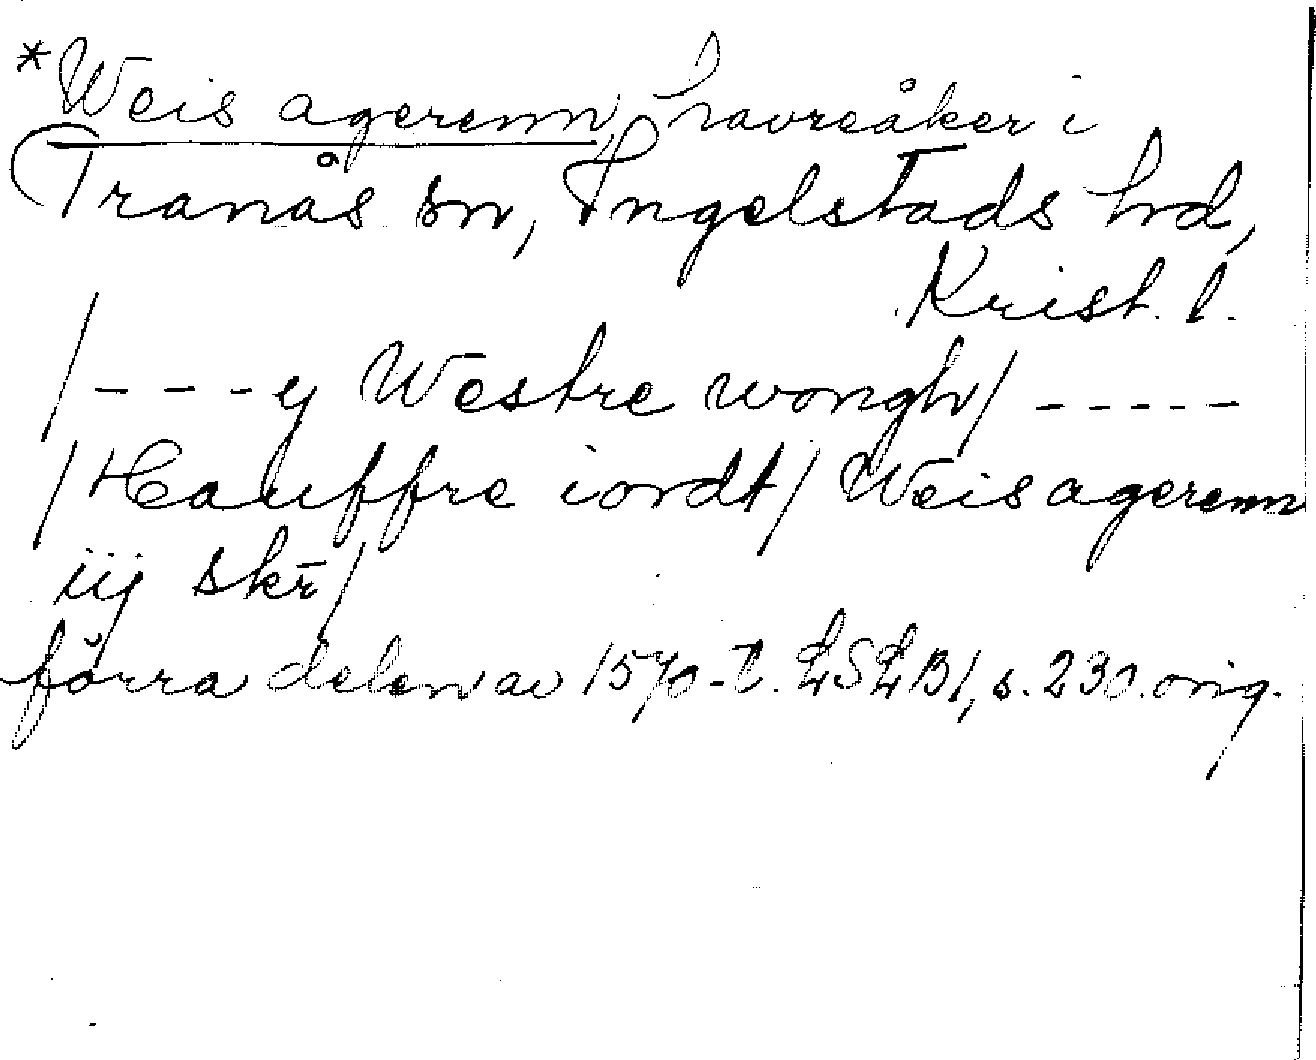 *Weis agerenn, havreåker i
Tranås sn, Ingelstads hd,
Krist. l.
/- - - - y Westre wongh/ - - - - -
/Hauffre iordt/ Weis agerenn
iij skr̄/
förra delen av 1570-t. LSLB1, s. 230. orig.